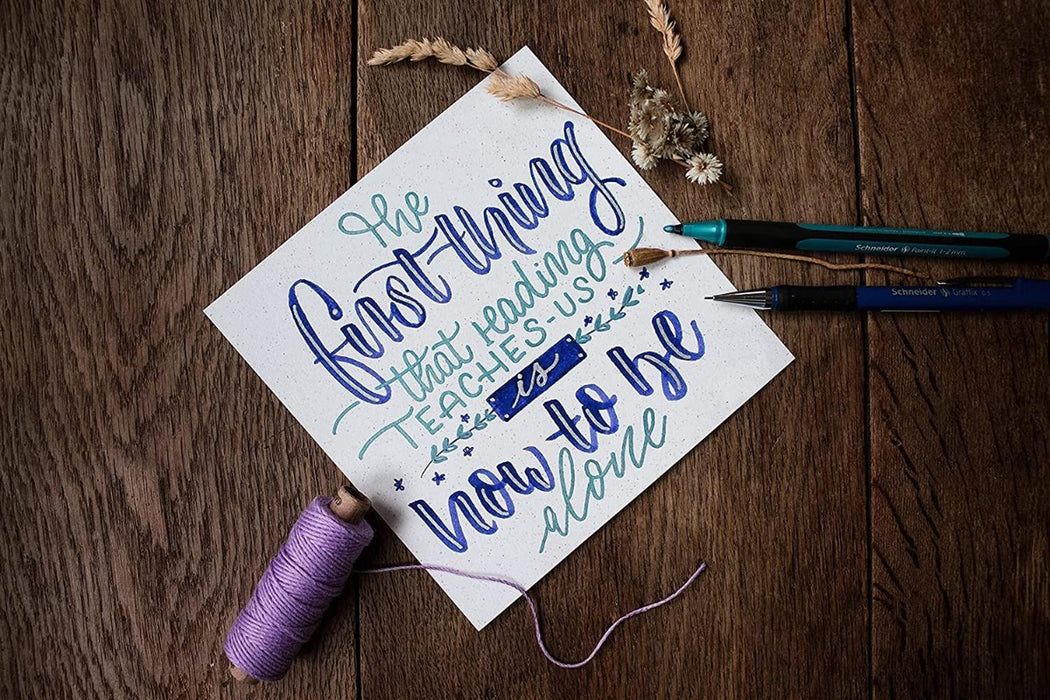 the
first thing
that reading
TEACHES-US
is
now to be
alone
Schneider Paint-it 1-2 mm
Schneider Graffix 0.5